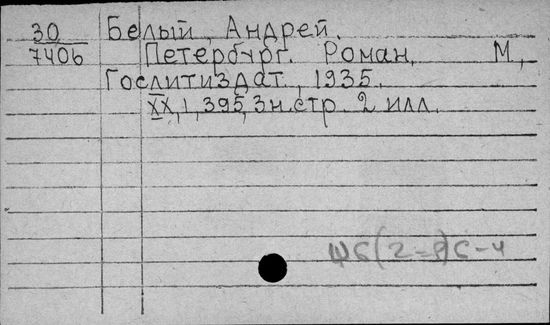 30
7406
Белый, Андрей.
Петербург. Роман. М.,
Гослитиздат, 1935.
XX, 1, 395, 3 н. стр. 2 илл.